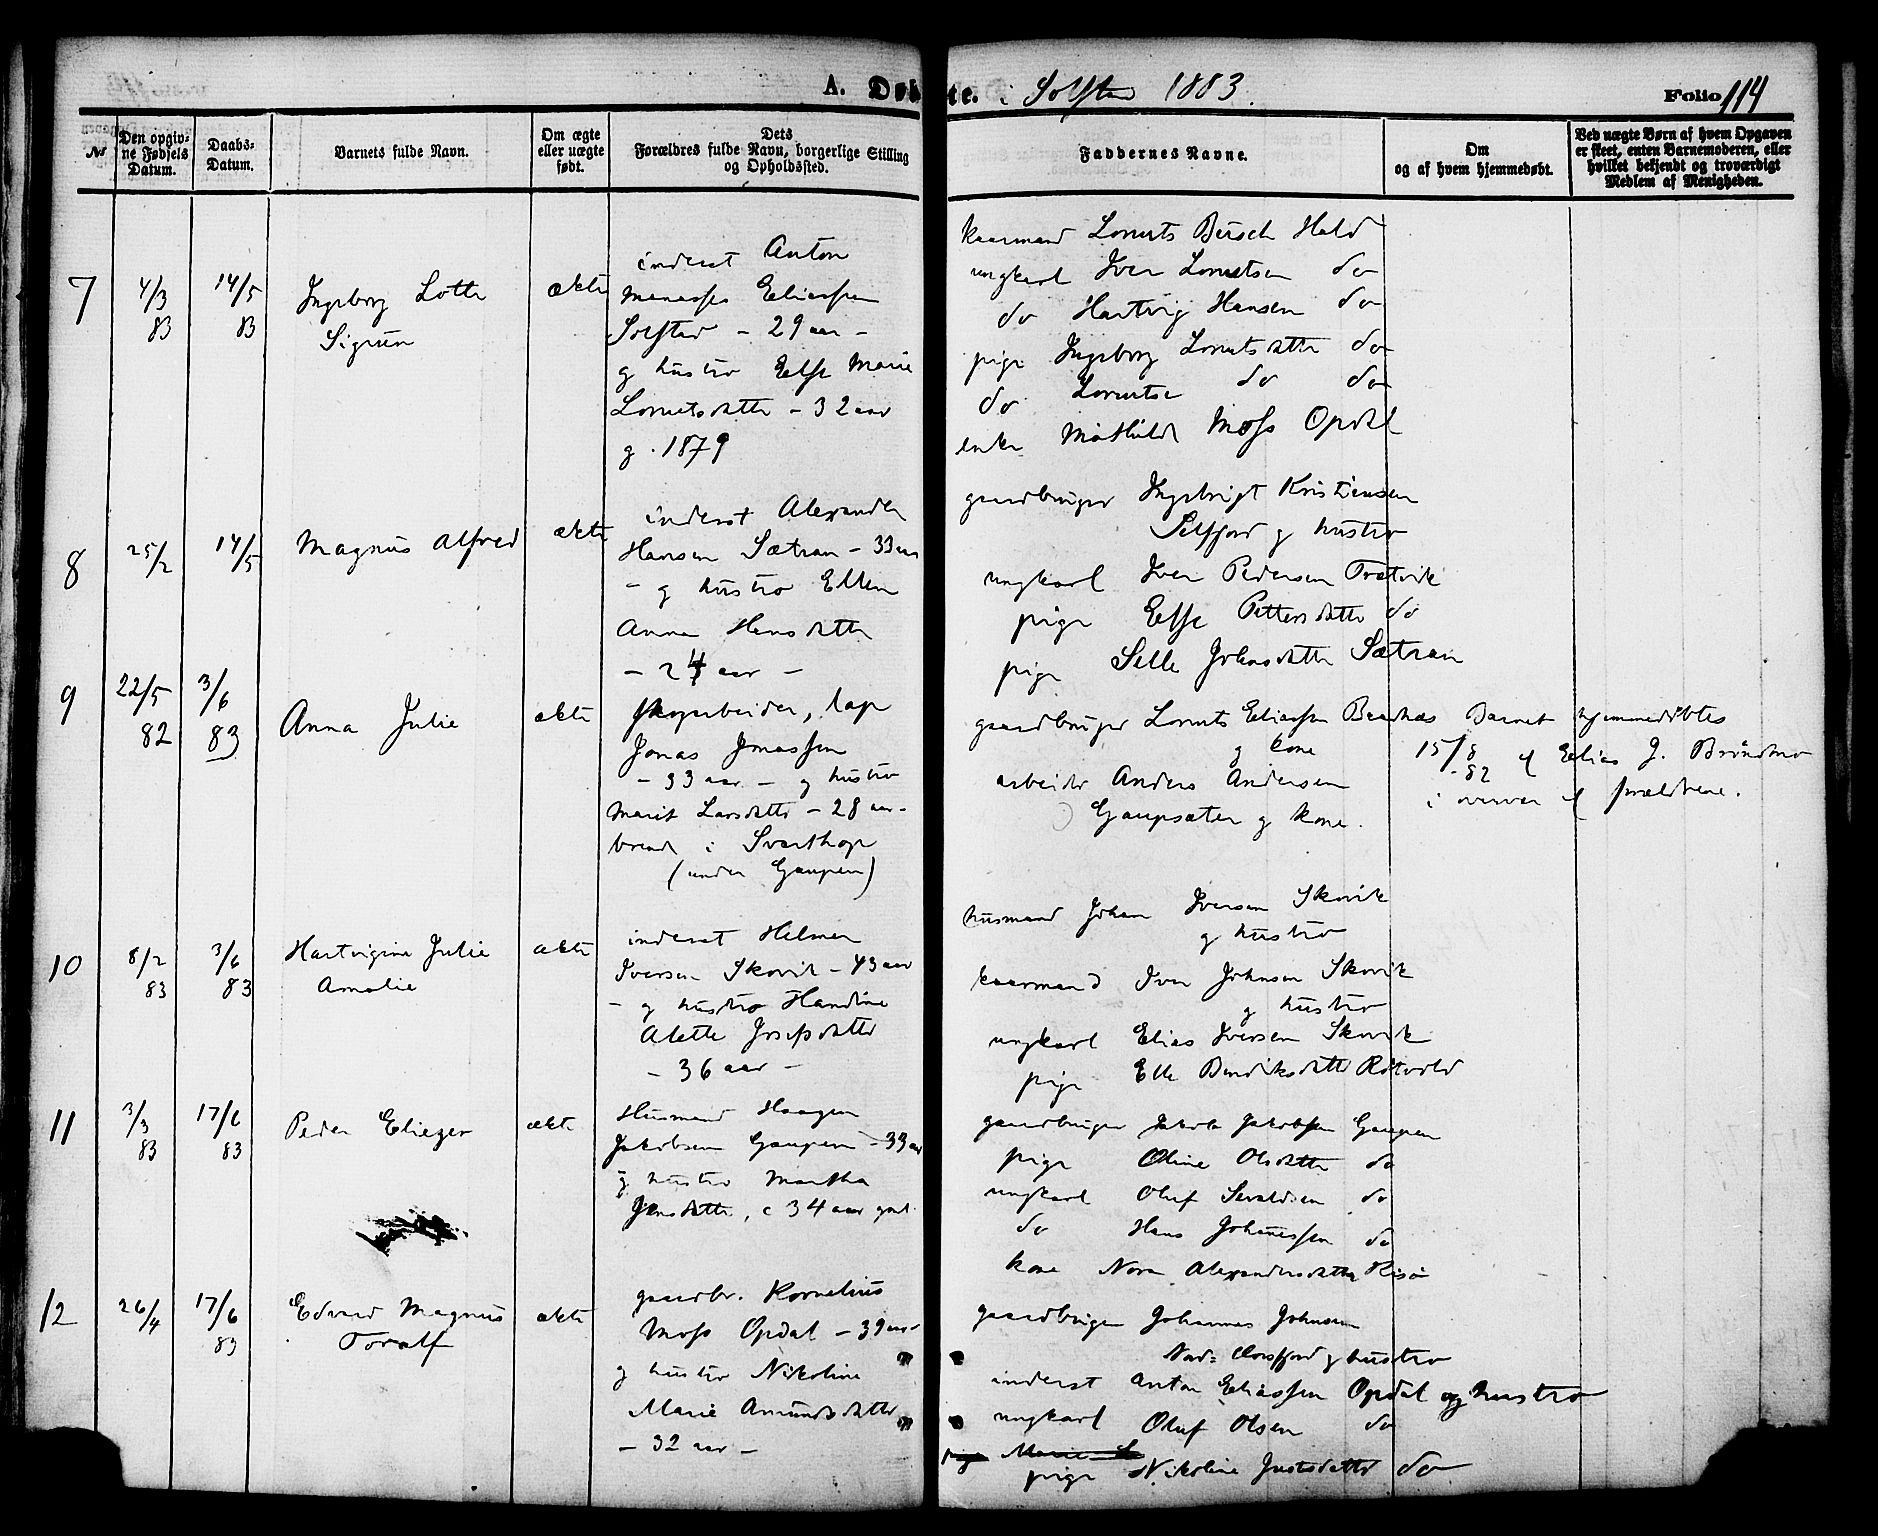 A. Døbte. i Solstad 1883. Folio 114
№
Den opgiv-
ne Fødsels
Datum.
Daabs-
Datum.
Barnets fulde Navn.
Om ægte
eller uægte
født.
Dets
Forældres fulde Navn, borgerlige Stilling
og Opholdssted.
Faddernes Navne.
Om
og af hvem hjemmedøbt.
Ved uægte Børn af hvem Opgaven
er skeet, enten Barnemoderen, eller
hvilket bekjendt og troværdigt
Medlem af Menigheden.
7
4/3
83
14/5
83
Ingeborg Lotte
Sigrun
ækte
inderst Anton
Menasse Eliassen
Solstad - 29 aar -
g hustru Else Marie
Lorntsdatter - 32 aar
g. 1879
kaarmand Lornts Busch Hald
ungkarl Iver Lorntsen do
do Hartvig Hansen do
pige Ingeborg Lorntsdatter do
do Lorntse do do
enke Mathilde Moss Opdal
8
25/2
14/5
Magnus Alfred
ækte
inderst Alexander
Hansen Sætran - 33 aar
- g hustru Ellen
Anna Hansdatter
- 24 aar -
gaardbruger Ingebrigt Kristiansen
Selfjord g hustru
ungkarl Iver Pedersen Trætvik
pige Else Pettersdatter do
pige Selle Johnsdatter Sætran
9
22/5
82
3/6
83
Anna Julie
ækte
skogarbeider, lap
Jonas Jonassen
- 33 aar - g hustru
Marit Larsdatter - 28 aar -
i Svarthop
(under Gaupen)
gaardbruger Lornts Eliassen
g kone
arbeider Anders Andersen
Gaupsæter g kone.
Barnet hjemmedöbtes
15/8
-82 af Elias J. Bröndmo
i nærvær af forældrene.
10
8/2
83
3/6
83
Hartvigine Julie
Amalie
ækte
inderst Helmer
Iversen Skovik - 43 aar
- g hustru Handine
Alette Josefsdatter
- 36 aar -
husmand Johan Iversen Skovik
g hustru
kaarmand Iver Johnsen Skovik
g hustru
ungkarl Elias Iversen Skovik
pige Elle Bendiksdatter Rötvold
11
3/3
83
17/6
83
Peder Eliezer
ækte
Husmand Haagen
Jakobsen Gaupen - 33 aar
g hustru Martha
Jensdatter, c 34 aar gml.
gaardbruger Jakob Jakobsen Gaupen
pige Oline Olsdatter do
ungkarl Oluf Sivaldsen do
do Hans Johanessen do
kone Nora Alexandersdatter Risö
12
26/4
17/6
83
Edvard Magnus
Toralf
ækte
gaardbr. Kornelius
Moss Opdal - 39 aar -
g hustru Nikoline
Marie Amundsdatter
- 32 aar -
gaardbruger Johannes Johnsen
g hustru
inderst Anton Eliassen Opdal og hustru
ungkarl Oluf Olsen do
pige Marie
pige Nikoline Justsdatter do